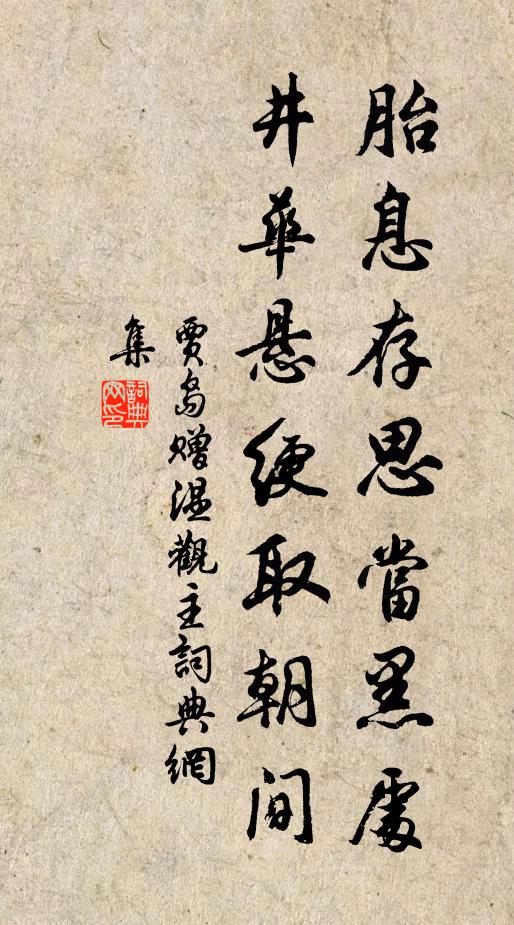 胎息存思當黑處
井華懸綆取朝間
賈島贈温觀主詞典網
集
詞典網印